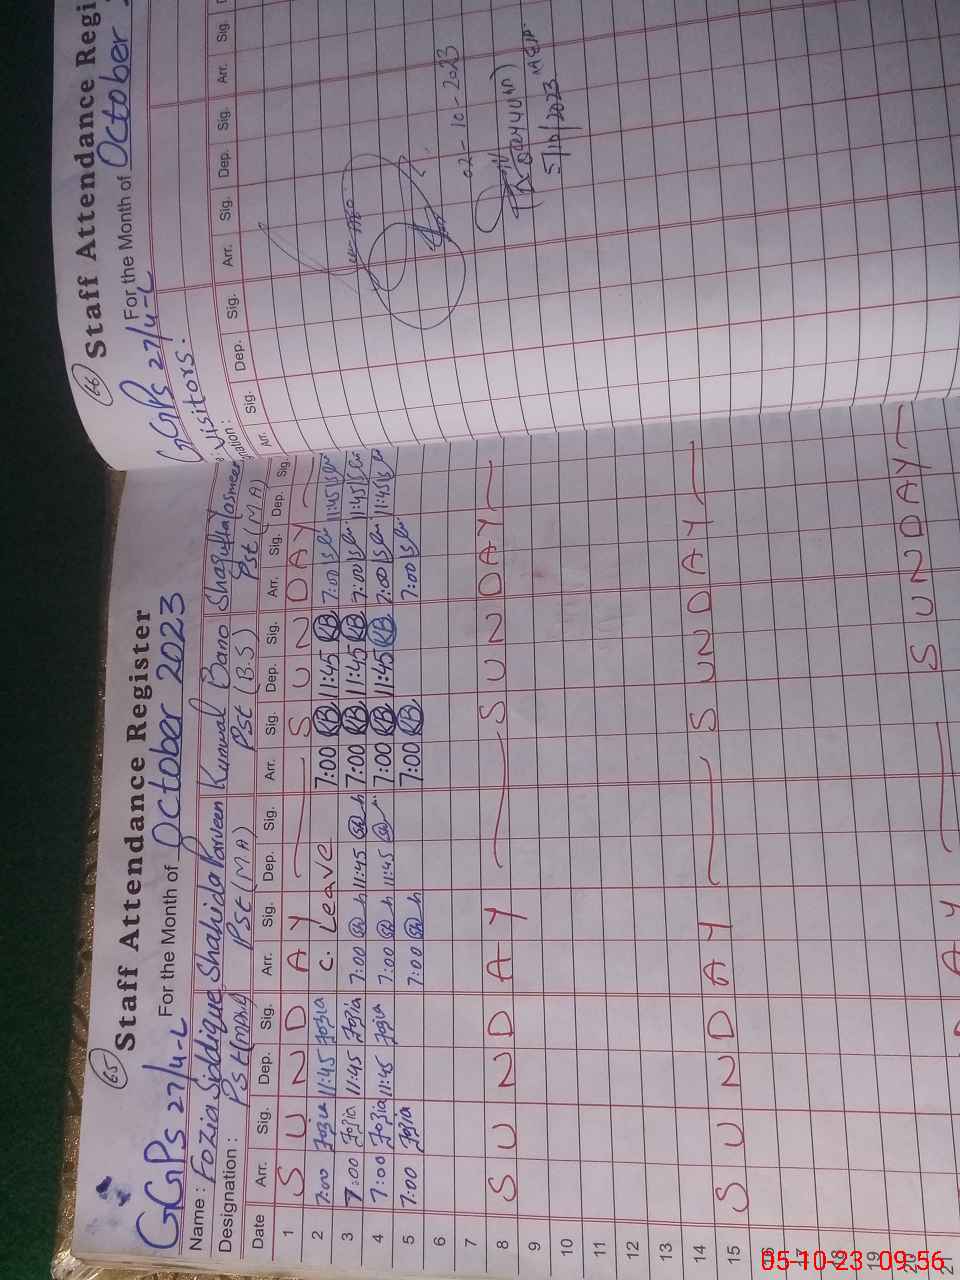 65
Staff Attendance Register
GGPS 27/4-L For the Month of October 2023
Name : Fozia Siddique Shahida Parveen Kunwal Bano Shagufta
Designation : Pst Pst (M A) Pst (B.S) Pst (M A)
Date Arr. Sig. Dep. Sig. Arr. Sig. Dep. Sig. Arr. Sig. Dep. Sig. Arr. Sig. Dep. Sig.
1 S U N D A Y — S U N D A Y —
2 7:00 Fozia 11:45 Fozia C. Leave 7:00 KB 11:45 KB 7:00 11:45
3 7:00 Fozia 11:45 Fozia 7:00 11:45 7:00 KB 11:45 KB 7:00 11:45
4 7:00 Fozia 11:45 Fozia 7:00 11:45 7:00 KB 11:45 KB 7:00 11:45
5 7:00 Fozia 7:00 7:00 KB 7:00
6
7
8 S U N D A Y — S U N D A Y —
9
10
11
12
13
14
15 S U N D A Y — S U N D A Y —
16
17
18
19
20 S U N D A Y
21 D A Y —
66
Staff Attendance Regi
GGPS 27/4-L For the Month of October
Visitors.
nation :
Arr. Sig. Dep. Sig. Arr. Sig. Dep. Sig. Arr. Sig.
02-10-2023
5/10/2023
05-10-23 09:56